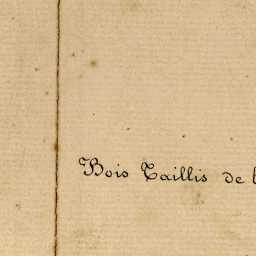 Bois Taillis de